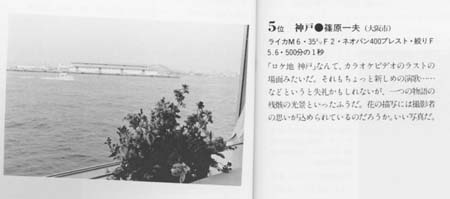 5位 神戸●篠原一夫(大阪市)
ライカM6・35㍉F2・ネオパン400プレスト・絞りF
5.6・500分の1秒
「ロケ地 神戸」なんて、カラオケビデオのラストの
場面みたいだ。それもちょっと新しめの演歌……
などというと失礼かもしれないが、一つの物語の
残骸の光景といったふうだ。花の描写には撮影者
の思いが込められているのだろうか。いい写真だ。